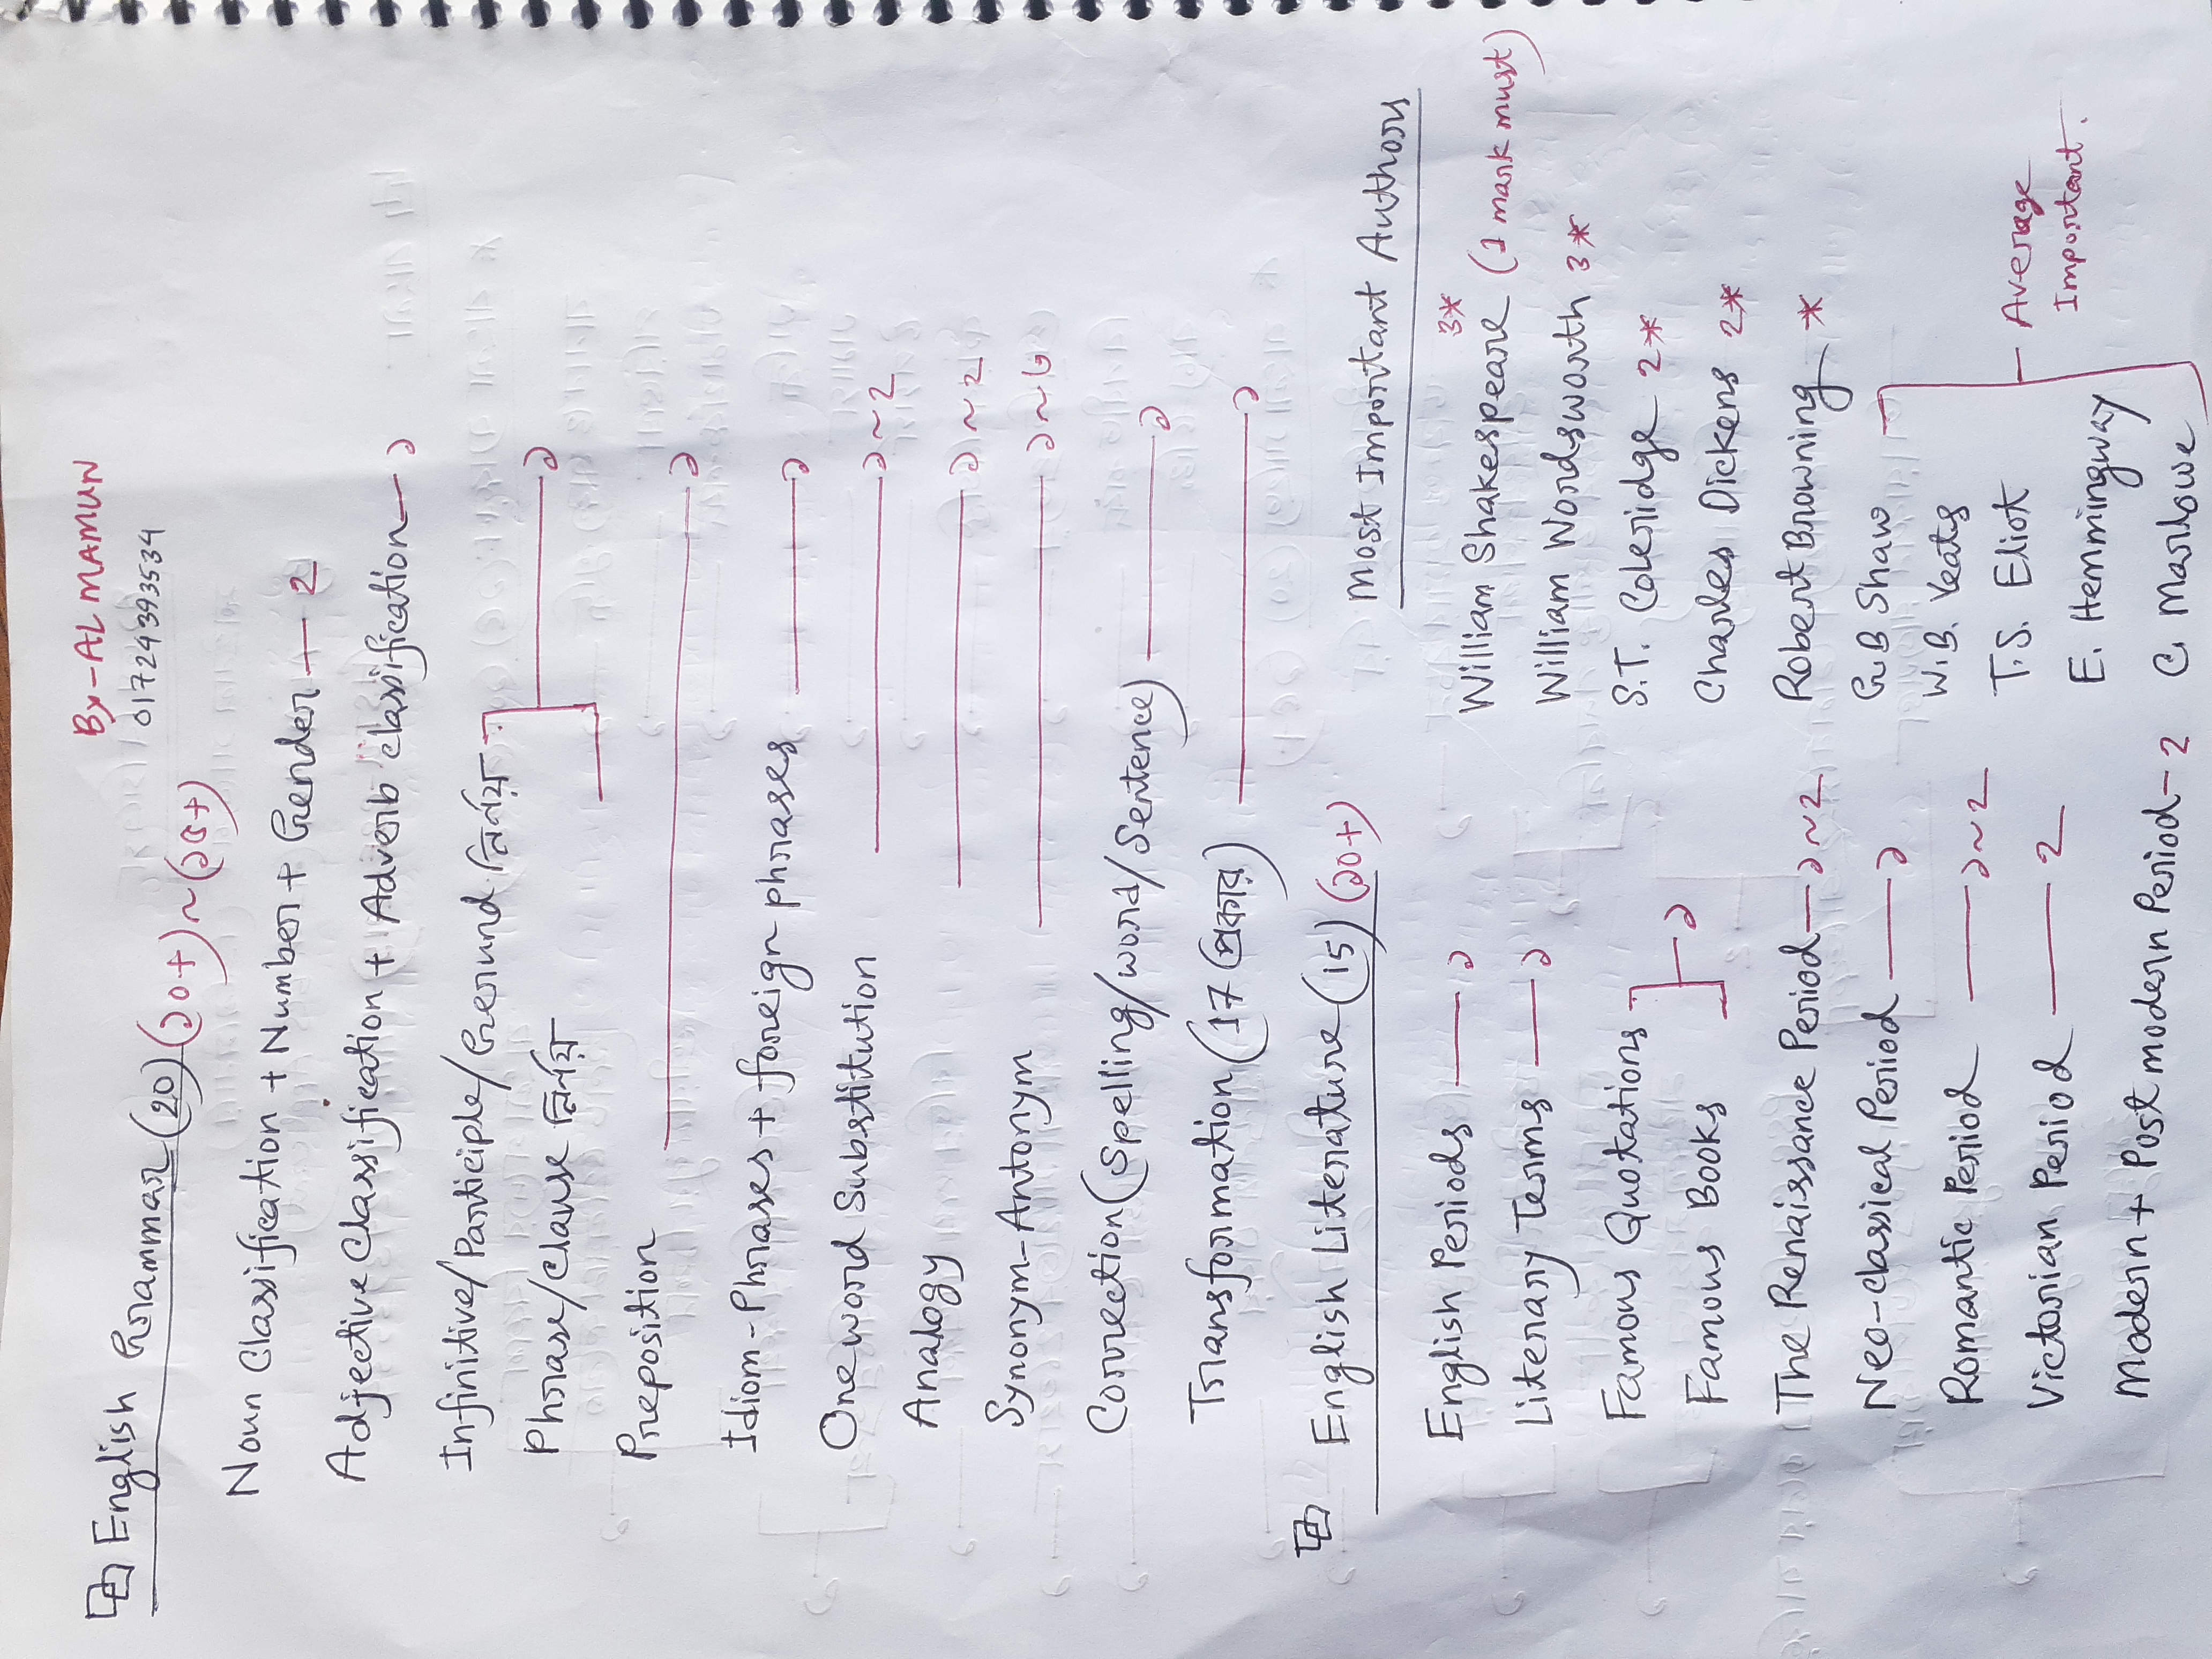 By-AL MAMUN
01724393534
English Grammar (20) (১০+) ~ (১৫+)
Noun Classification + Number + Gender — ২
Adjective Classification + Adverb classification — ১
Infinitive/Participle/Gerund নির্ণয়
Phrase/Clause নির্ণয় — ১
Preposition — ১
Idiom-Phrases + foreign phrases — ১
One word Substitution — ১~২
Analogy — ১~২
Synonym-Antonym — ১~৩
Correction (Spelling/word/Sentence) — ১
Transformation (17 প্রকার) — ১
English Literature (15) (১০+)
English Periods — ১
Literary Terms — ১
Famous Quotations
Famous Books — ১
The Renaissance Period — ১~২
Neo-classical Period — ১
Romantic Period — ১~২
Victorian Period — ২
Modern + Post modern Period - ২
Most Important Authors
William Shakespeare 3* (1 mark must)
William Wordsworth 3*
S.T. Coleridge 2*
Charles Dickens 2*
Robert Browning *
G.B Shaw
W.B. Yeats
T.S. Eliot
E. Hemmingway
C. Marlowe
— Average
Important.